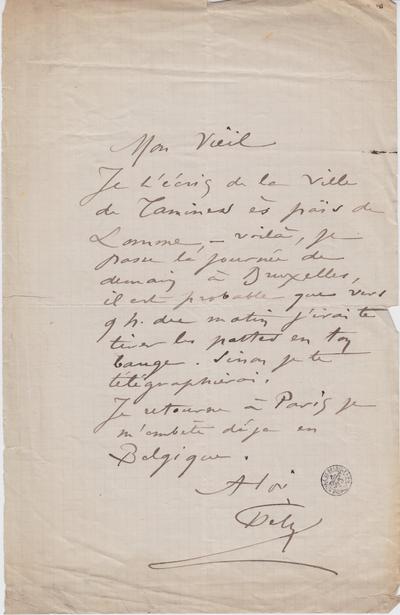 Mon Vieil
Je t'écris de la ville
de Tamines ès païs de
Lomme, – voilà, je
passe la journée de
demain à Bruxelles,
il est probable que vers
9 h. du matin j'irai te
tirer les pattes en ton
bauge. Sinon je te
télégraphierai.
Je retourne à Paris je
m'embête déjà en
Belgique.
A toi